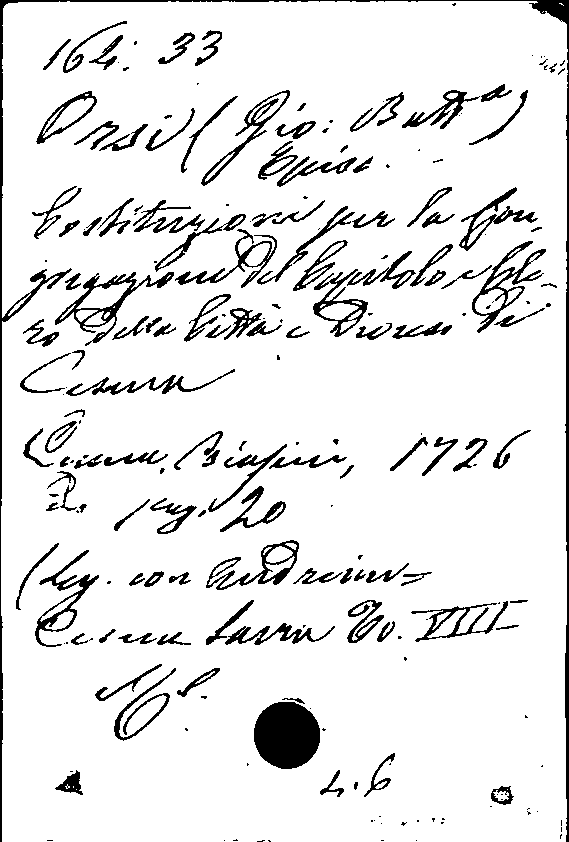 164: 33
Orsi (Gio: Batt.a)
Episc.
Costituzioni per la Con-
gregazione del Capitolo e Cle-
ro della Città e Diocesi di
Cesena
Cesena, Biasini, 1726
pag. 20
(leg. con Andreini=
Cesena Sacra To. VIII
4.6